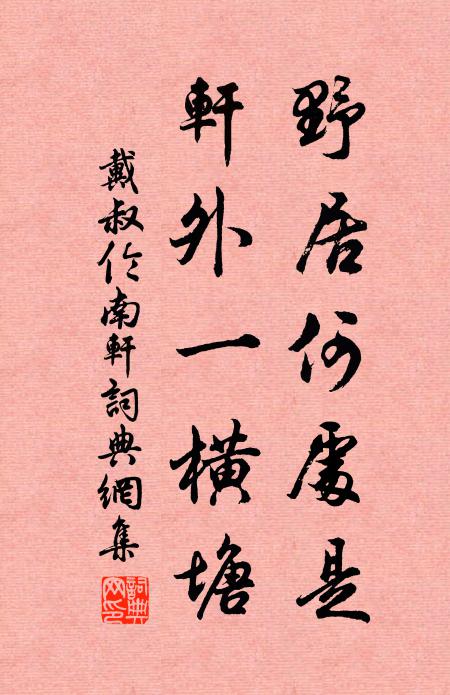 野居何處是
軒外一橫塘
戴叔伦南軒詞典網集
詞典网印